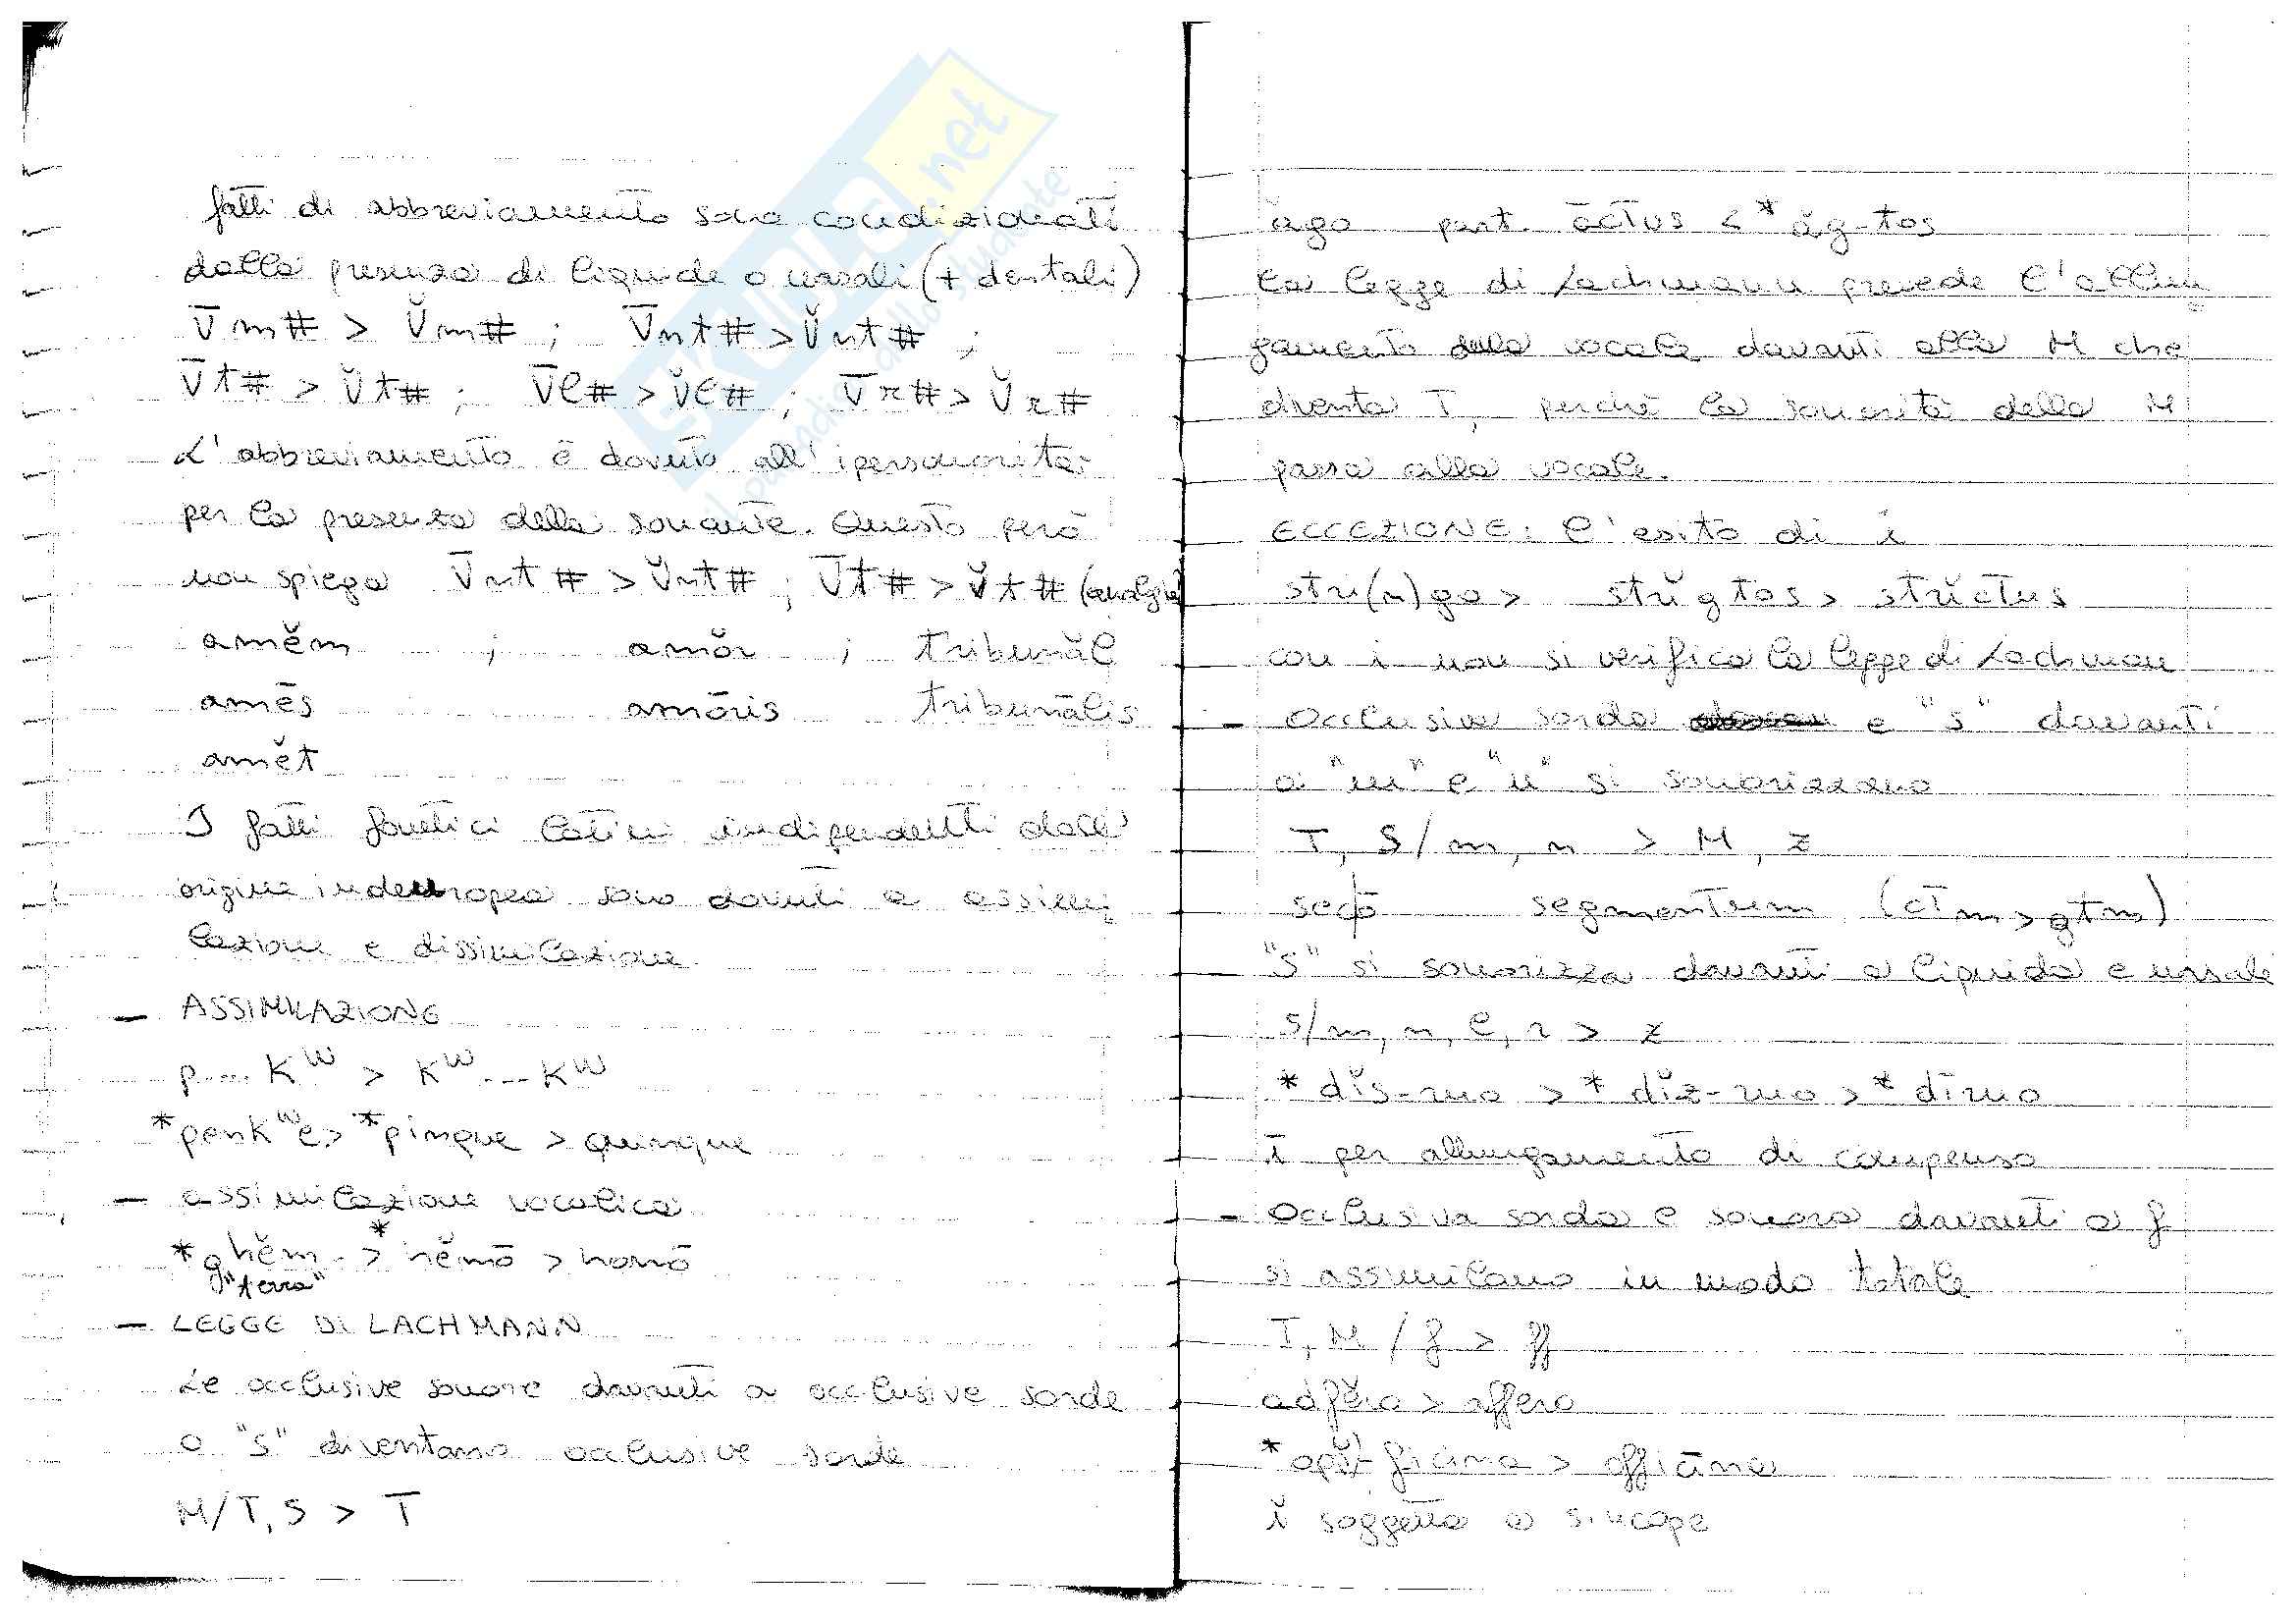 fatti di abbreviamento sono condizionati
dalla presenza di liquide o nasali (+ dentali)
V̄m# > V̆m# ; V̄nt# > V̆nt# ;
V̄t# > V̆t# ; V̄l# > V̆l# ; V̄r# > V̆r#
L'abbreviamento è dovuto all'ipersonorità
per la presenza della sonante. Questo però
non spiega V̄nt# > V̆nt# ; V̄t# > V̆t# (analogia)
amĕm ; amŏr ; tribunăl
amēs amōris tribunālis
amĕt
I fatti fonetici latini indipendenti dall'
origine indeuropea sono dovuti a assimi
lazione e dissimilazione
- ASSIMILAZIONE
p....Kᵂ > Kᵂ...Kᵂ
*penkʷe > *pinque > quinque
- assimilazione vocalica
*ghĕm- > *hĕmō > homō
"terra"
- LEGGE DI LACHMANN
Le occlusive sonore davanti a occlusive sorde
o "s" diventano occlusive sorde
M/T, S > T
ăgo part. āctus < *ăg-tos
La legge di Lachmann prevede l'allun
gamento della vocale davanti alla M che
diventa T, perché la sonorità della M
passa alla vocale.
ECCEZIONE: l'esito di ĭ
stri(n)go > strĭgtos > strĭctus
con i non si verifica la legge di Lachman
- Occlusive sorda e "s" davanti
a "m" e "n" si sonorizzano
T, S/m, n > M, z
secō segmentum (ctm > gtm)
"S" si sonorizza davanti a liquida e nasale
s/m, n, l, r > z
*dĭs-mo > *dĭz-mo > *dīmo
ī per allungamento di compenso
- Occlusiva sorda e sonora davanti a f
si assimilano in modo totale
T, M / f > ff
adfĕro > affero
*opĭ-ficina > officīna
ĭ soggetta a sincope
SKUOLA.net